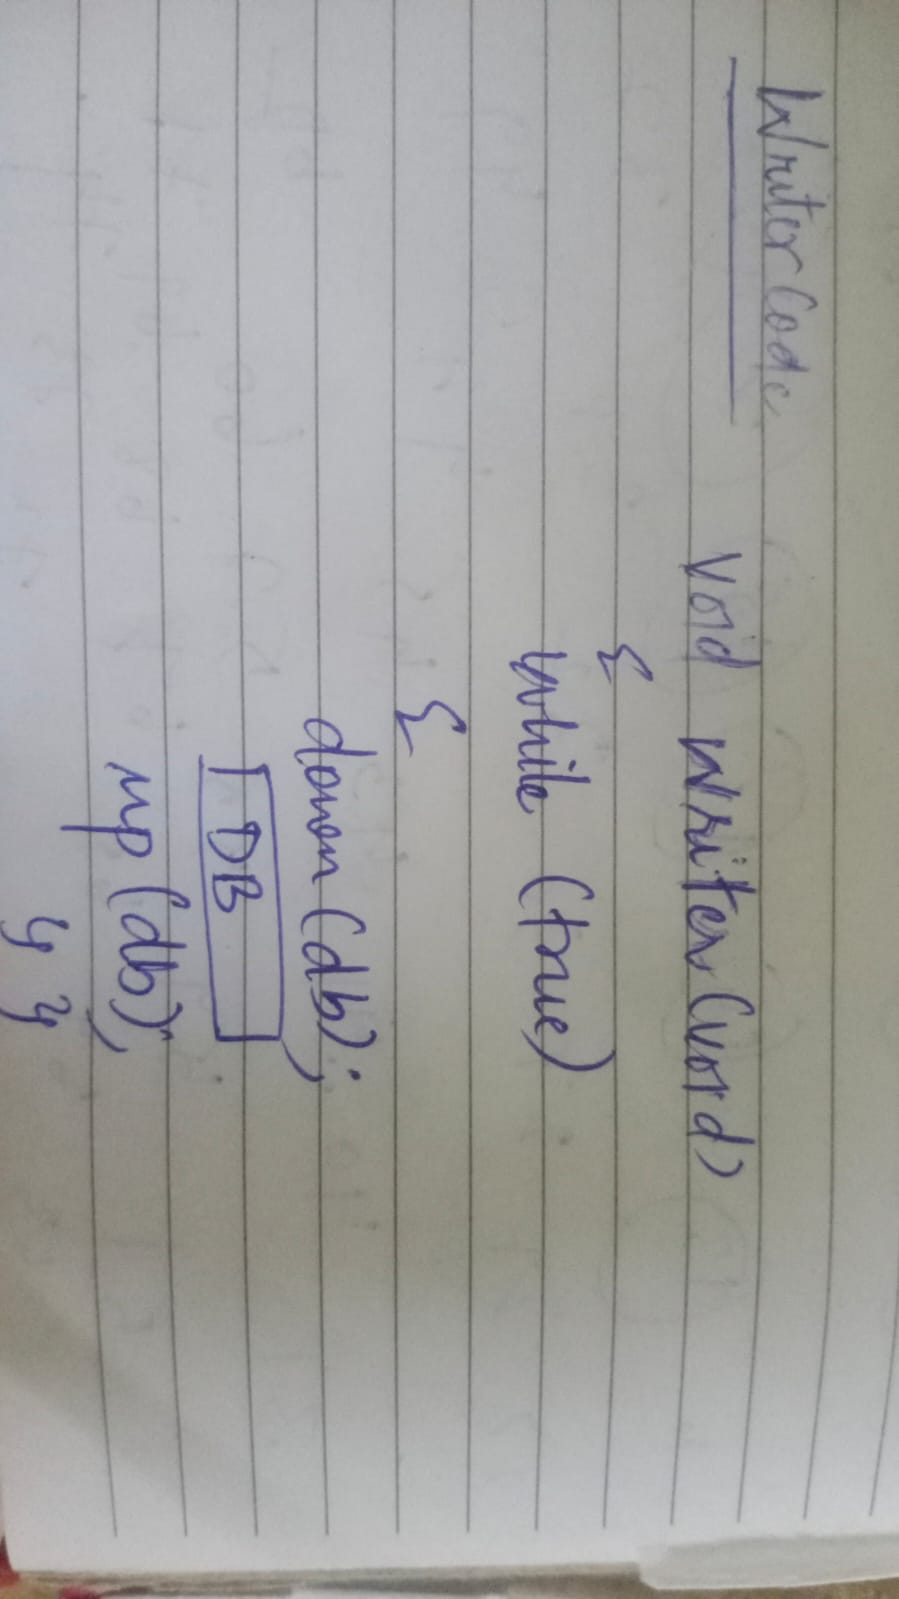 Writer Code
void writer(void)
{
while (true)
{
down(db);
DB
up(db);
} }